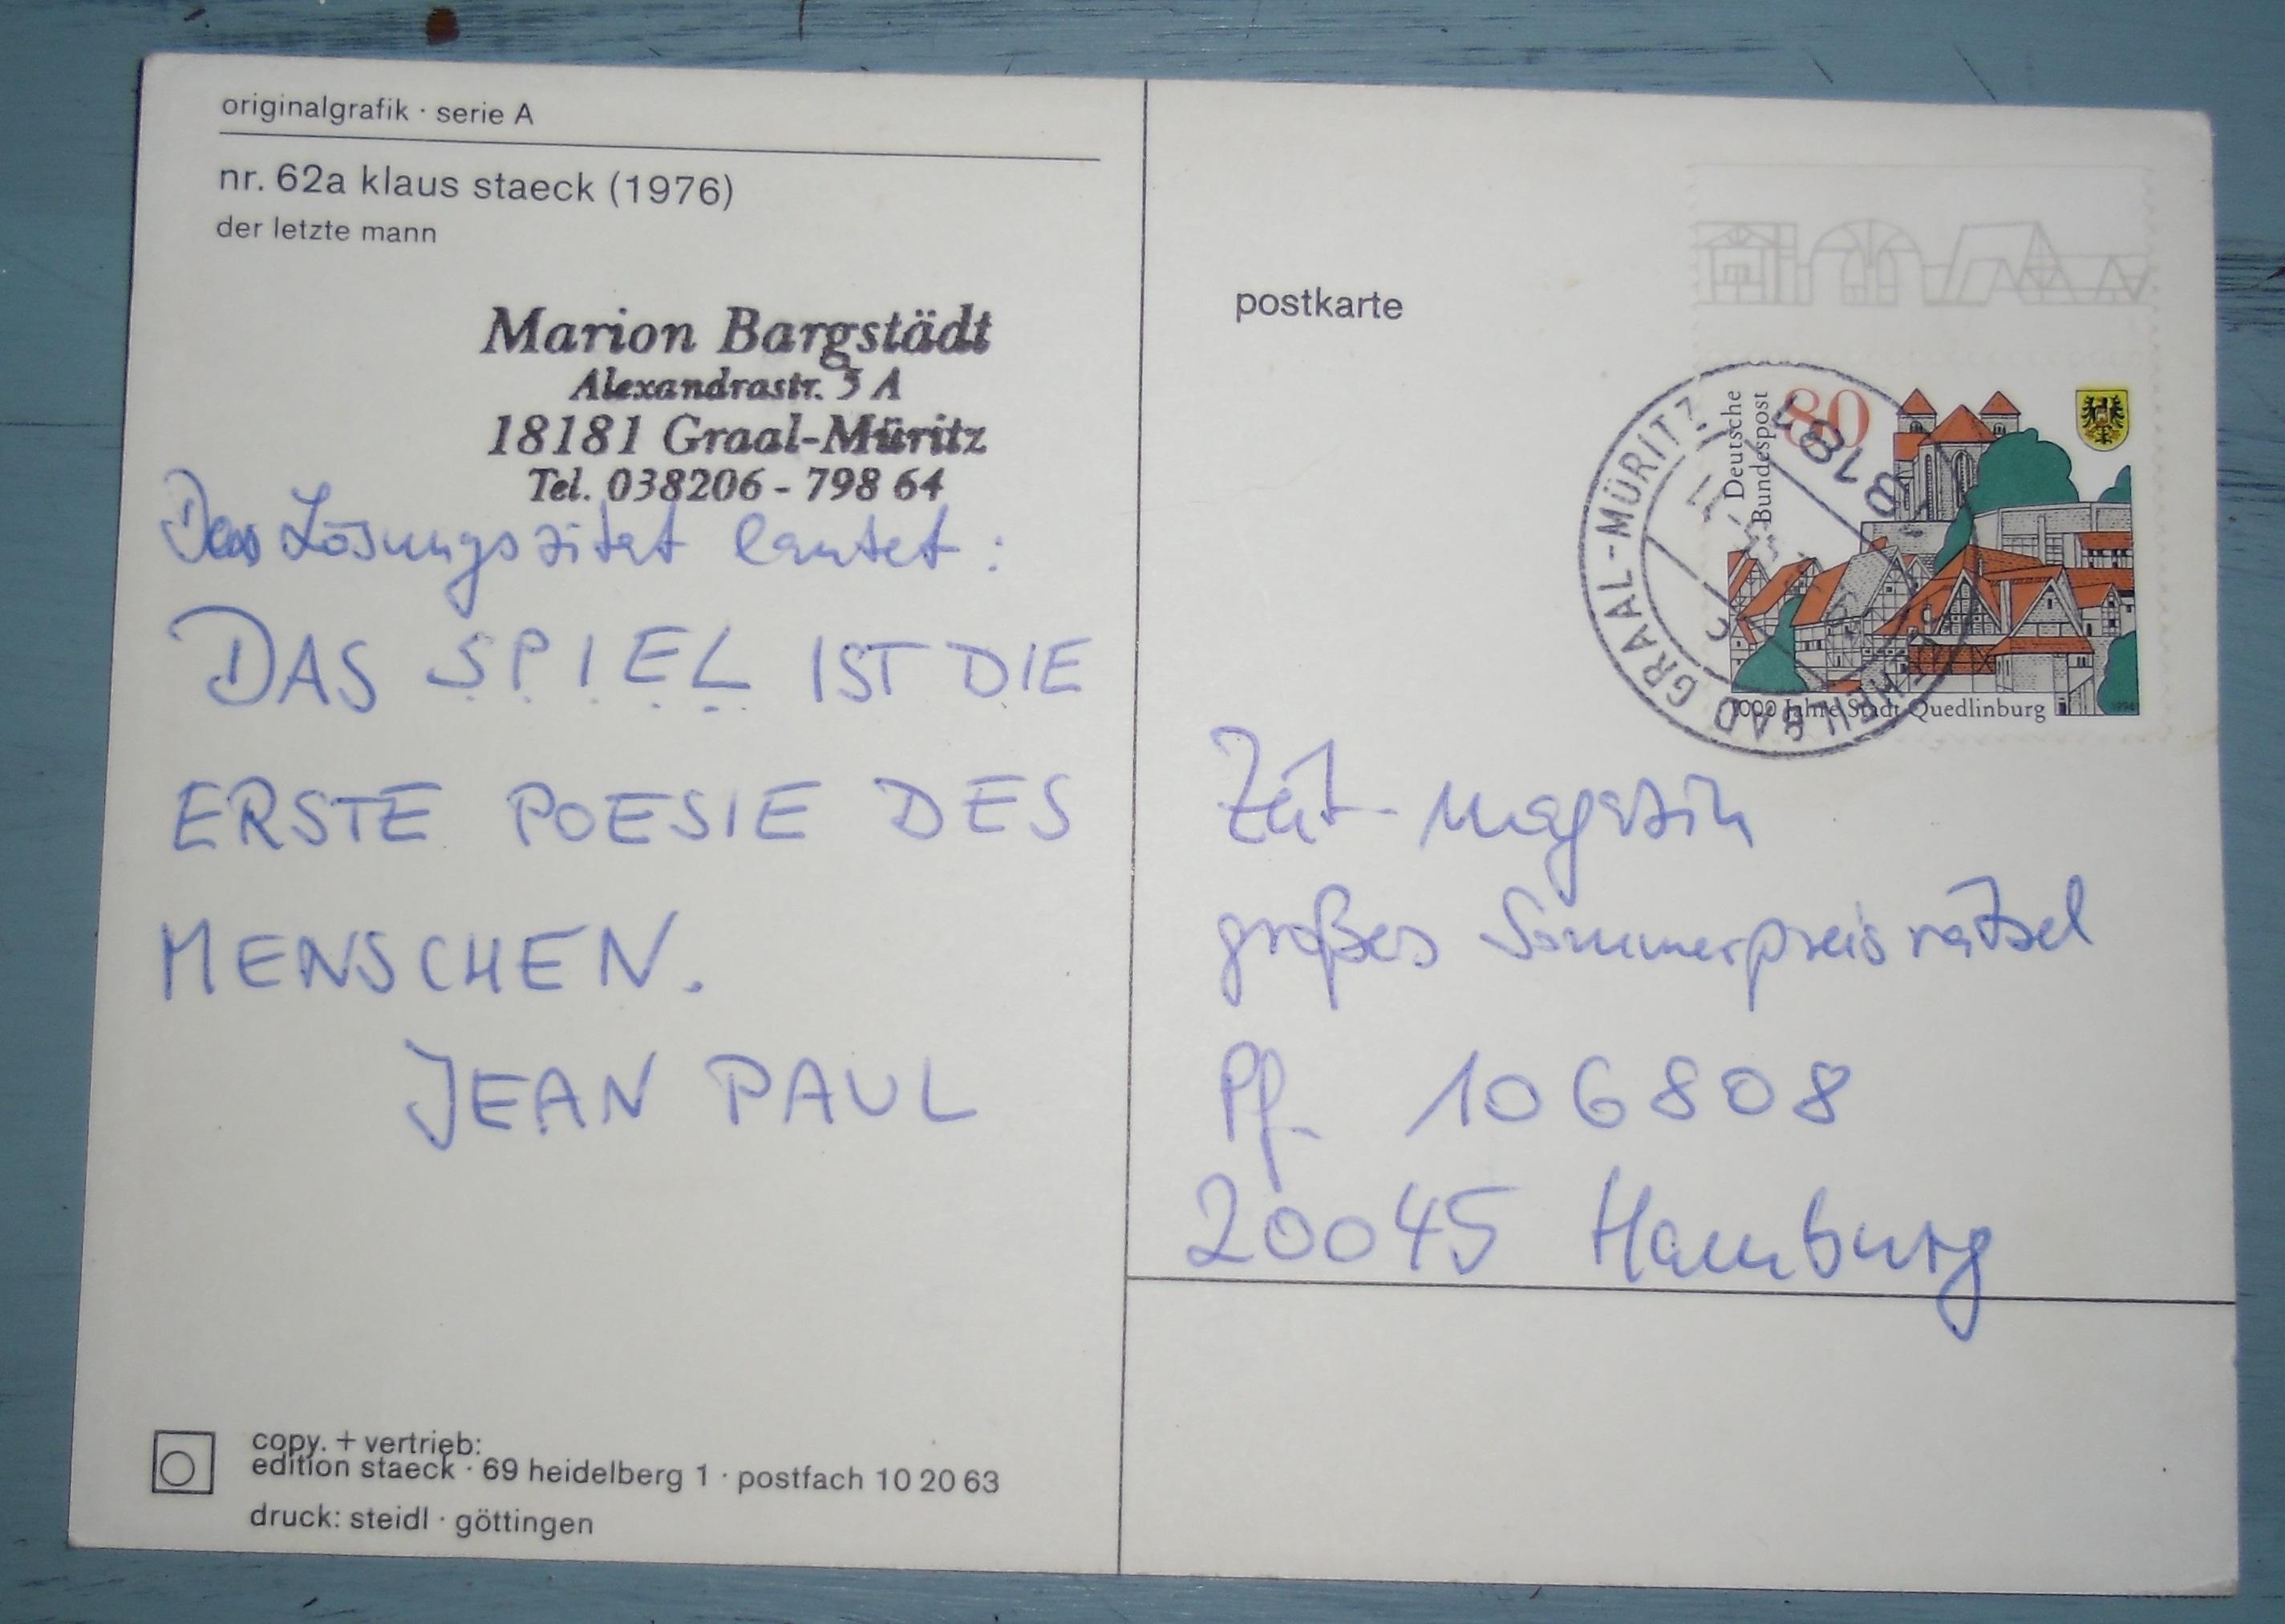 originalgrafik · serie A
nr. 62a klaus staeck (1976)
der letzte mann
Marion Bargstädt
Alexandrastr. 5 A
18181 Graal-Müritz
Tel. 038206 - 798 64
Das Lösungszitat lautet :
DAS SPIEL IST DIE
ERSTE POESIE DES
MENSCHEN.
JEAN PAUL
copy. + vertrieb:
edition staeck · 69 heidelberg 1 · postfach 10 20 63
druck: steidl · göttingen
postkarte
Deutsche
Bundespost
80
1000 Jahre Stadt Quedlinburg
1994
18181
SEEHEILBAD GRAAL-MÜRITZ
Zeit-Magazin
großes Sommerpreisrätsel
Pf. 106808
20045 Hamburg